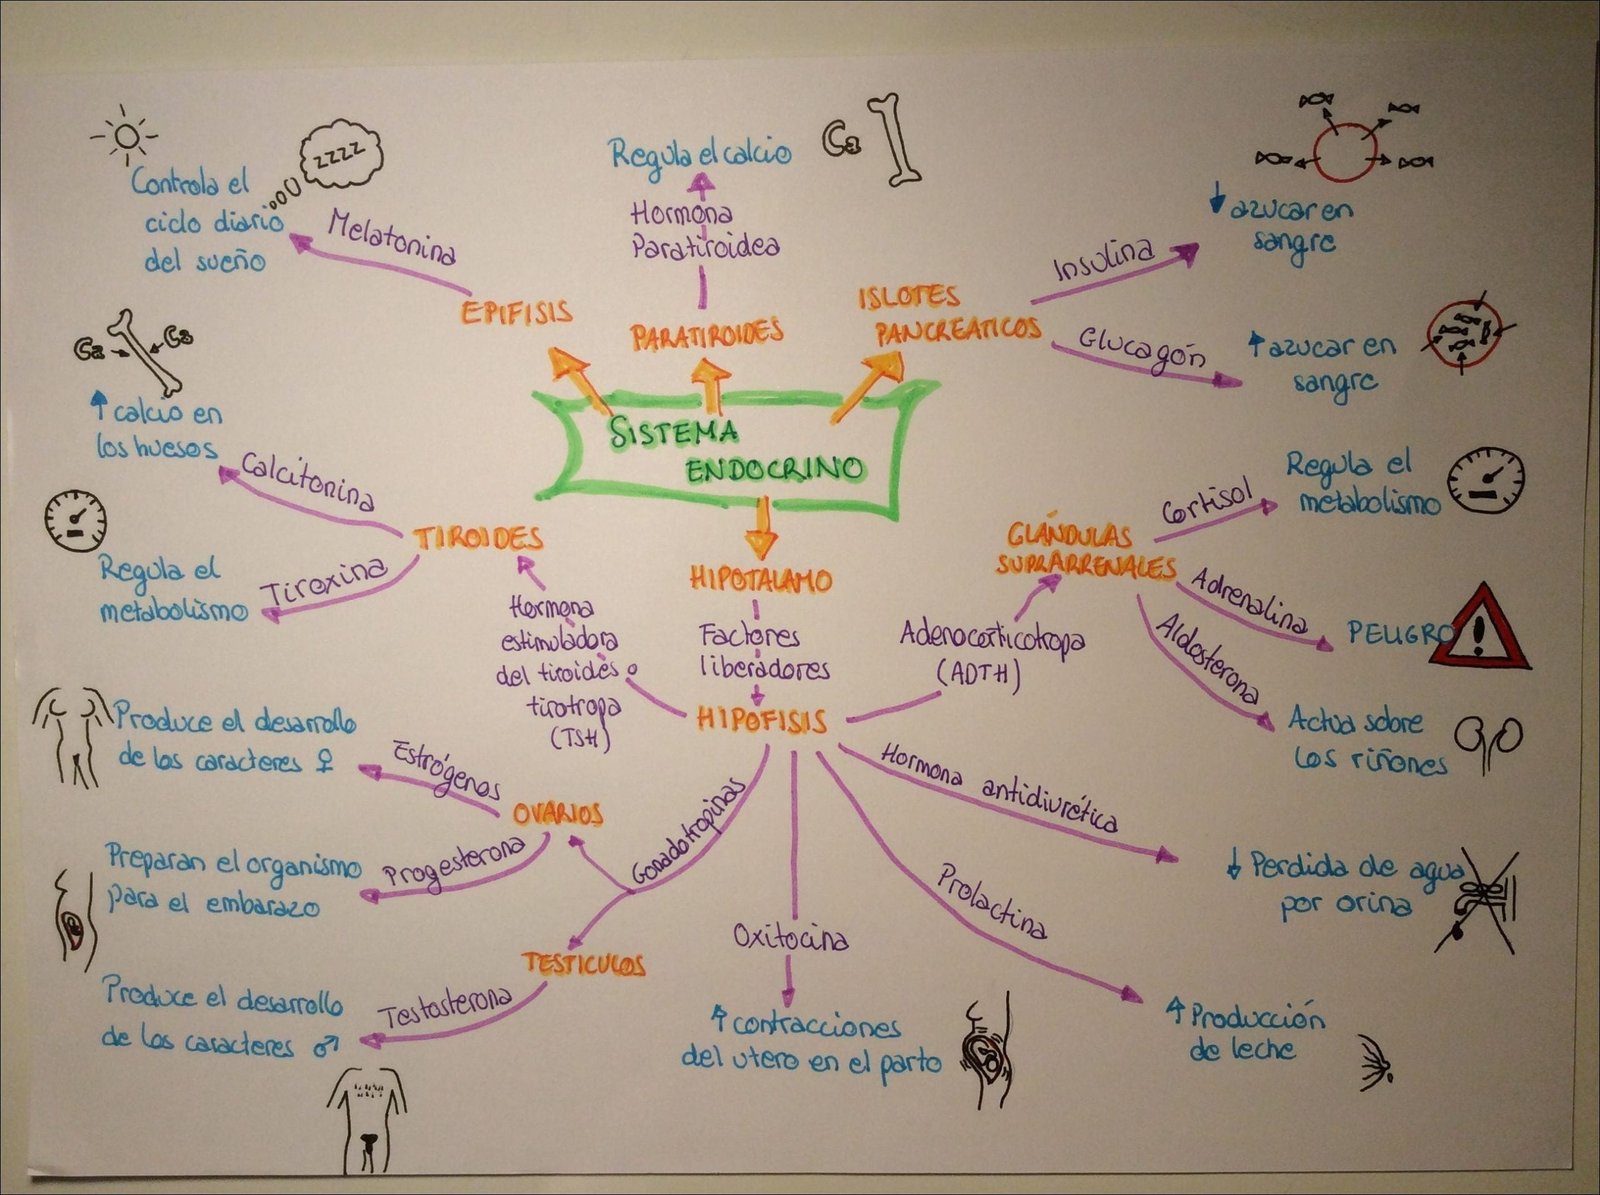 SISTEMA
ENDOCRINO
EPIFISIS
Melatonina
Controla el
ciclo diario
del sueño
zzzz
PARATIROIDES
Hormona
Paratiroidea
Regula el calcio
Ca
ISLOTES
PANCREATICOS
Insulina
↓ azucar en
sangre
Glucagón
↑ azucar en
sangre
HIPOTALAMO
Factores
liberadores
HIPOFISIS
Hormona
estimuladora
del tiroides o
tirotropa
(TSH)
TIROIDES
Calcitonina
↑ calcio en
los huesos
Ca
Ca
Tiroxina
Regula el
metabolismo
Adenocorticotropa
(ADTH)
GLÁNDULAS
SUPRARRENALES
Cortisol
Regula el
metabolismo
Adrenalina
PELIGRO
!
Aldosterona
Actúa sobre
los riñones
Hormona antidiurética
↓ Perdida de agua
por orina
Prolactina
↑ Producción
de leche
Oxitocina
↑ contracciones
del utero en el parto
Gonadotropinas
OVARIOS
Estrógenos
Produce el desarrollo
de los caracteres ♀
Progesterona
Preparan el organismo
para el embarazo
TESTICULOS
Testosterona
Produce el desarrollo
de los caracteres ♂